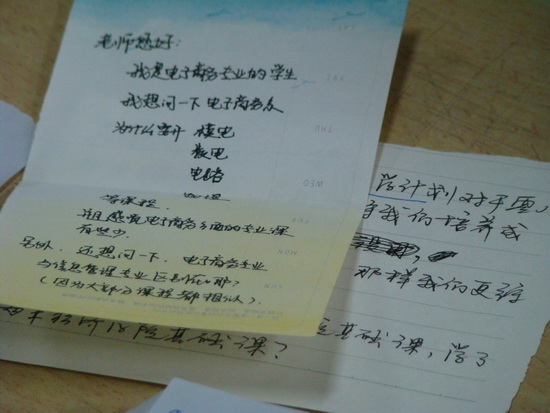 老师您好:
我是电子商务专业的学生
我想问一下电子商务
为什么要开 模电
数电
电路
等课程
且感觉电子商务方面的专业课
有些少.
另外, 还想问一下, 电子商务专业
与信息管理专业区别在哪?
(因为大部分课程都相似).
学计划对于
我们培养成
那样我们更
基础课, 学了
基础课?
SAT
FRI
THU
WED
TUE
MON
SUN